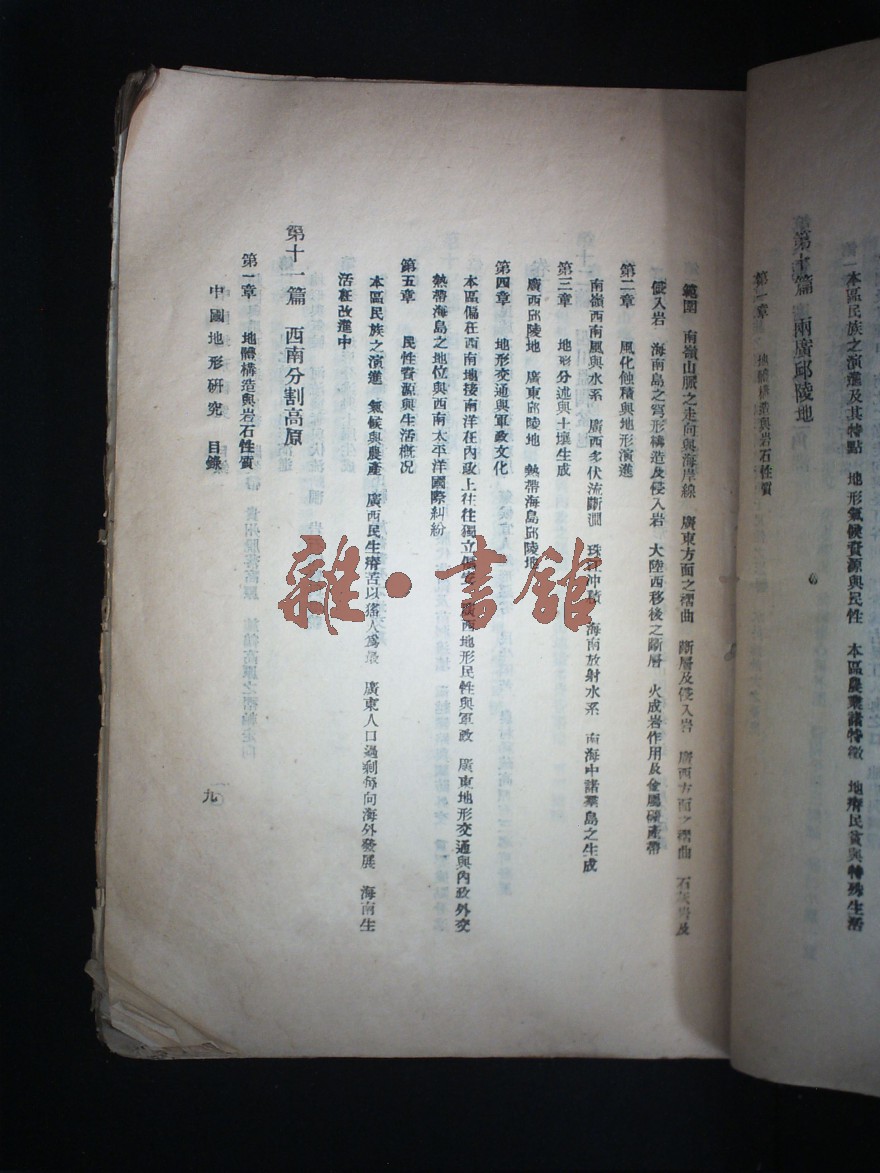 本區民族之演進及其特點　地形氣候資源與民性　本區農業諸特徵　地瘠民貧與特殊生活
第十篇　兩廣邱陵地
第一章　地體構造與岩石性質
範圍　南嶺山脈之走向與海岸線　廣東方面之褶曲　斷層及侵入岩　廣西方面之褶曲　石灰岩及
侵入岩　海南島之穹形構造及侵入岩　大陸西移後之斷層　火成岩作用及金屬礦產帶
第二章　風化蝕積與地形演進
南嶺西南風與水系　廣西多伏流斷澗　珠江沖積　海南放射水系　南海中諸羣島之生成
第三章　地形分述與土壤生成
廣西邱陵地　廣東邱陵地　熱帶海島邱陵地
第四章　地形交通與軍政文化
本區偏在西南地接南洋在內政上往往獨立偏安　廣西地形民性與軍政　廣東地形交通與內政外交
熱帶海島之地位與西南太平洋國際糾紛
第五章　民性資源與生活概況
本區民族之演進　氣候與農產　廣西民生瘠苦以猺人為最　廣東人口過剩每向海外發展　海南生
活在改進中
第十一篇　西南分割高原
第一章　地體構造與岩石性質
中國地形研究　目錄
九
雜·書館